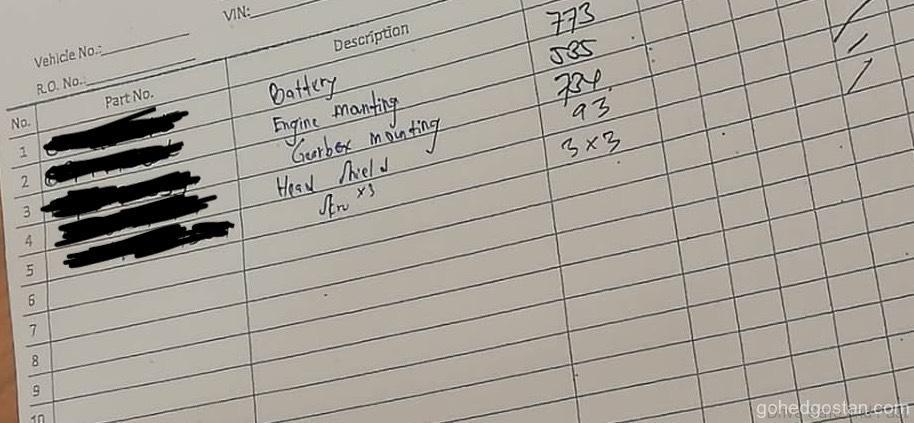 VIN:
Vehicle No.:
R.O. No.:
No. Part No. Description
1 Battery 773
2 Engine mounting 585
3 Gearbox mounting 734
4 Head shield 93
5 x3 3x3
6
7
8
9
10
gohedgostan.com